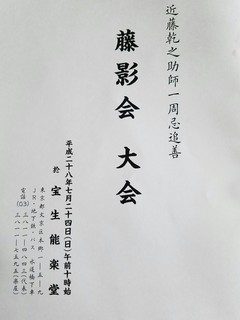 近藤乾之助師一周忌追善
藤影会 大会
平成二十八年七月二十四日(日)午前十時始
於 宝生能楽堂
東京都文京区本郷一―五―九
JR・地下鉄・バス 水道橋下車
電話(03) 三八一一―四八四三(代表)
三八一一―七五九五(楽屋)